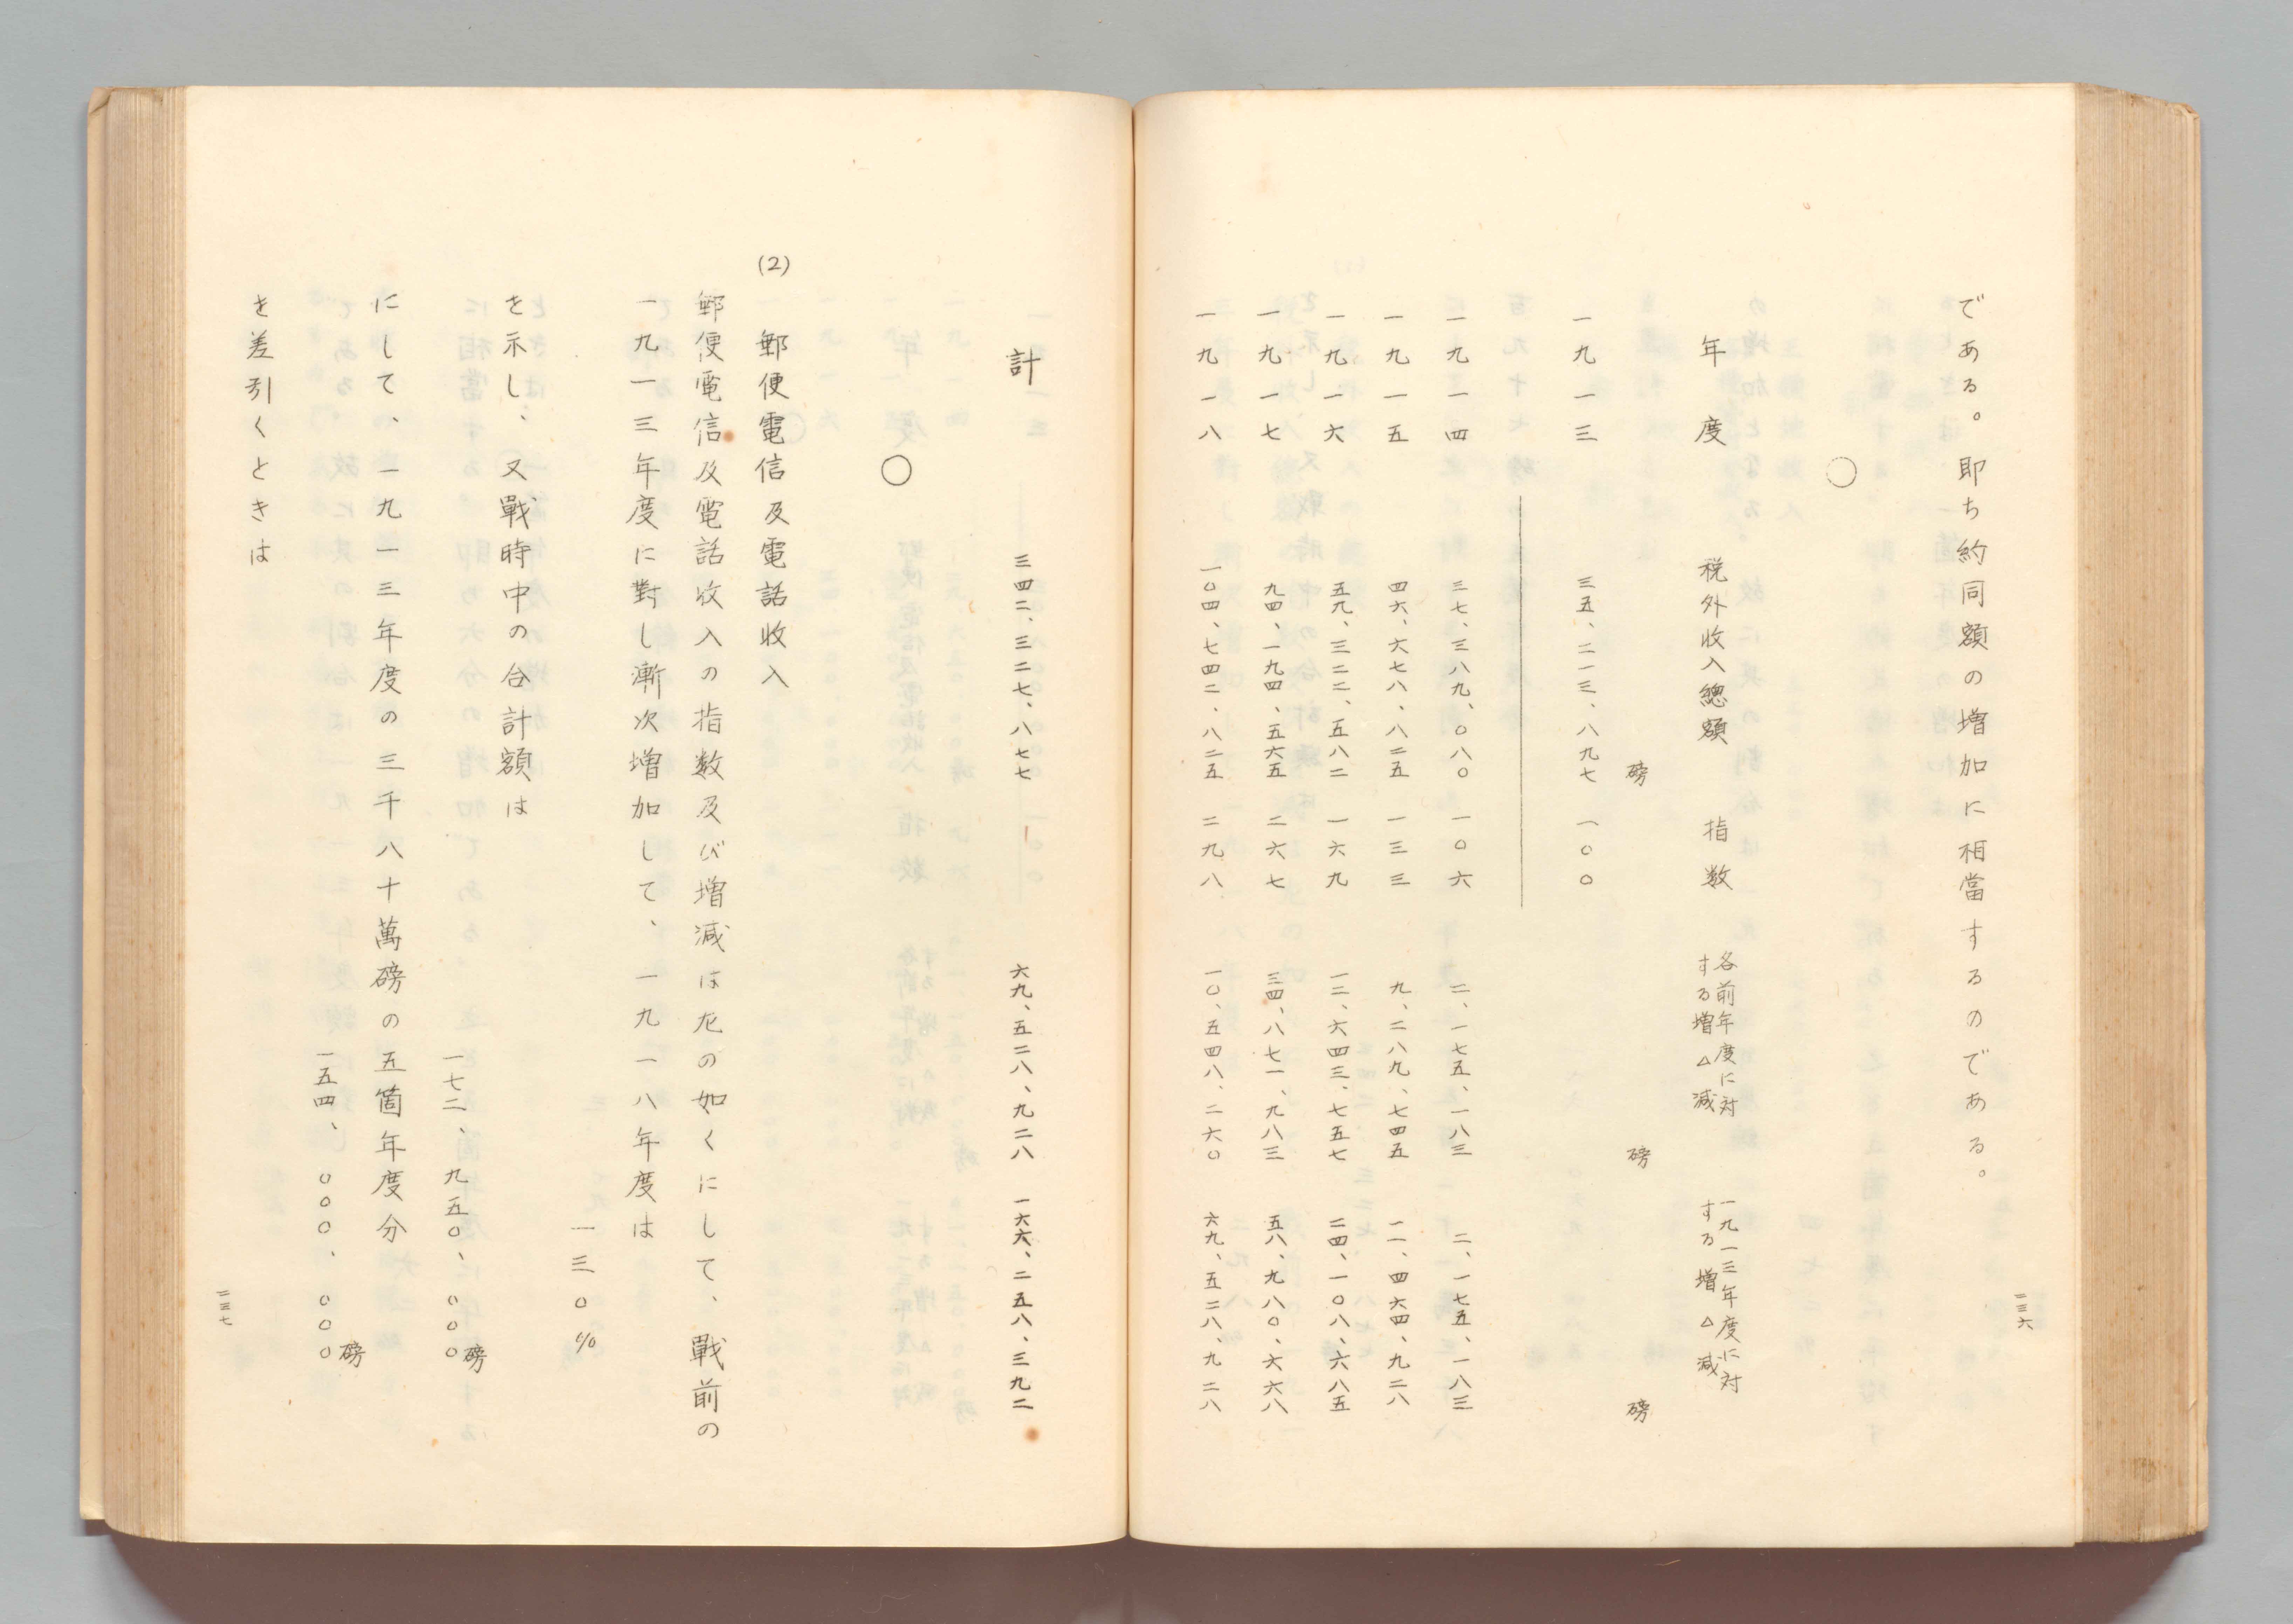 である。即ち約同額の増加に相當するのである。
○
年度 税外收入總額 指数 各前年度に対する増△減 一九一三年度に対する増△減
磅 磅 磅
一九一三 三五、二一三、八九七 一〇〇
一九一四 三七、三八九、〇八〇 一〇六 二、一七五、一八三 二、一七五、一八三
一九一五 四六、六七八、八二五 一三三 九、二八九、七四五 一一、四六四、九二八
一九一六 五九、三二二、五八二 一六九 一二、六四三、七五七 二四、一〇八、六八五
一九一七 九四、一九四、五六五 二六七 三四、八七一、九八三 五八、九八〇、六六八
一九一八 一〇四、七四二、八二五 二九八 一〇、五四八、二六〇 六九、五二八、九二八
二三六
計 三四二、三二七、八七七 六九、五二八、九二八 一六六、二五八、三九二
○
(2) 郵便電信及電話收入
郵便電信及電話收入の指数及び増減は左の如くにして、戰前の
一九一三年度に對し漸次増加して、一九一八年度は
一三〇%
を示し、又戰時中の合計額は
一七二、九五〇、〇〇〇磅
にして、一九一三年度の三千八十萬磅の五箇年度分
一五四、〇〇〇、〇〇〇磅
を差引くときは
二三七